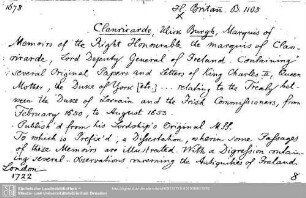 1678
H. Britan. B. 1103
Clanricarde, Ulick Burgh, Marquis of
Memoirs of the Right Honourable the marquis of Clan-
ricarde, Lord Deputy General of Ireland. Containing
several Original Papers and Letters of King Charles II, Queen
Mother, the Duke of York [etc.] ... relating to the Treaty bet-
ween the Duke of Lorrain and the Irish Commissioners, from
February 1650, to August 1653.
Publish'd from his Lordship's Original MSS.
To which is Prefix'd, a Dissertation, wherein some Passages
of these Memoirs are illustrated. With a Digression contain-
ing several observations concerning the Antiquities of Ireland.
London
1722
8